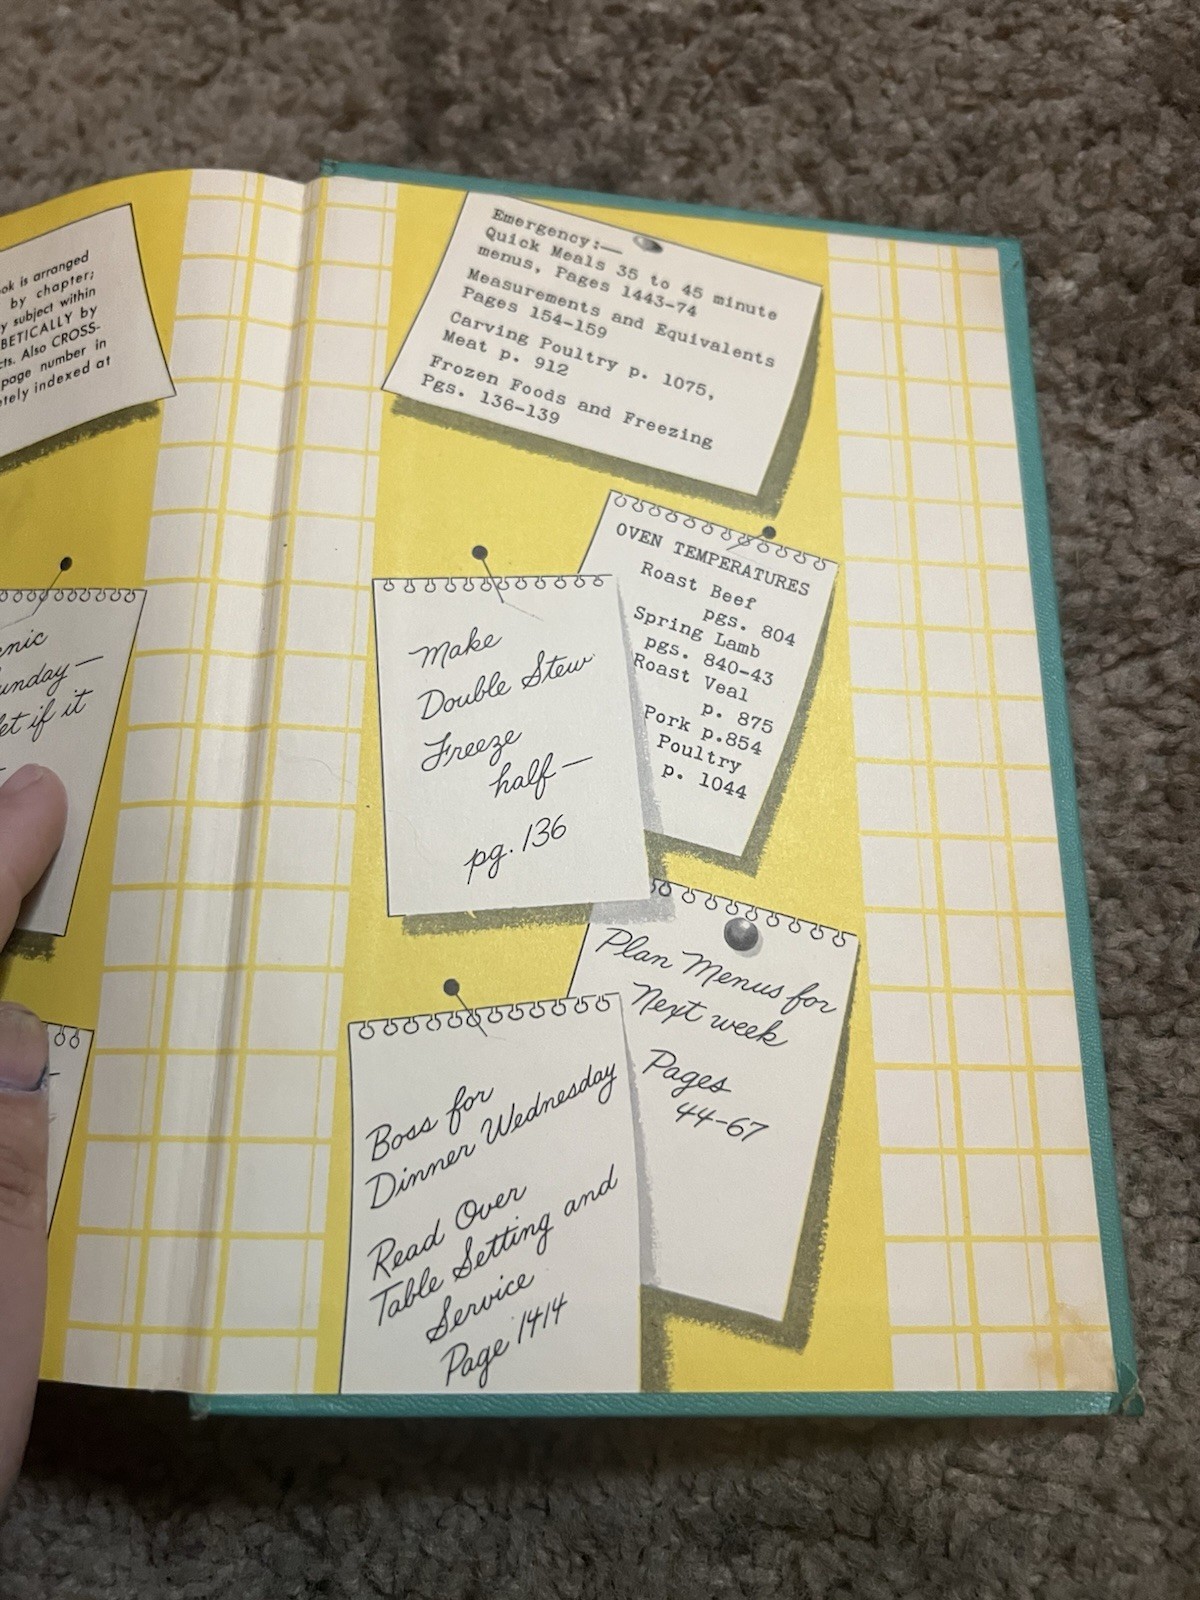 ok is arranged
by chapter;
y subject within
BETICALLY by
cts. Also CROSS-
page number in
etely indexed at
unday—
et if it
Emergency:—
Quick Meals 35 to 45 minute
menus, Pages 1443-74
Measurements and Equivalents
Pages 154-159
Carving Poultry p. 1075,
Meat p. 912
Frozen Foods and Freezing
Pgs. 136-139
OVEN TEMPERATURES
Roast Beef
pgs. 804
Spring Lamb
pgs. 840-43
Roast Veal
p. 875
Pork p.854
Poultry
p. 1044
Make
Double Stew
Freeze
half—
pg. 136
Plan Menus for
Next week
Pages
44-67
Boss for
Dinner Wednesday
Read Over
Table Setting and
Service
Page 1414